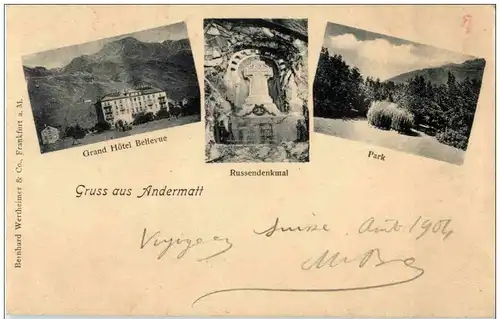 Grand Hôtel Bellevue
Russendenkmal
Park
Gruss aus Andermatt
Bernhard Wertheimer & Co., Frankfort a. M.
Suisse Août 1904